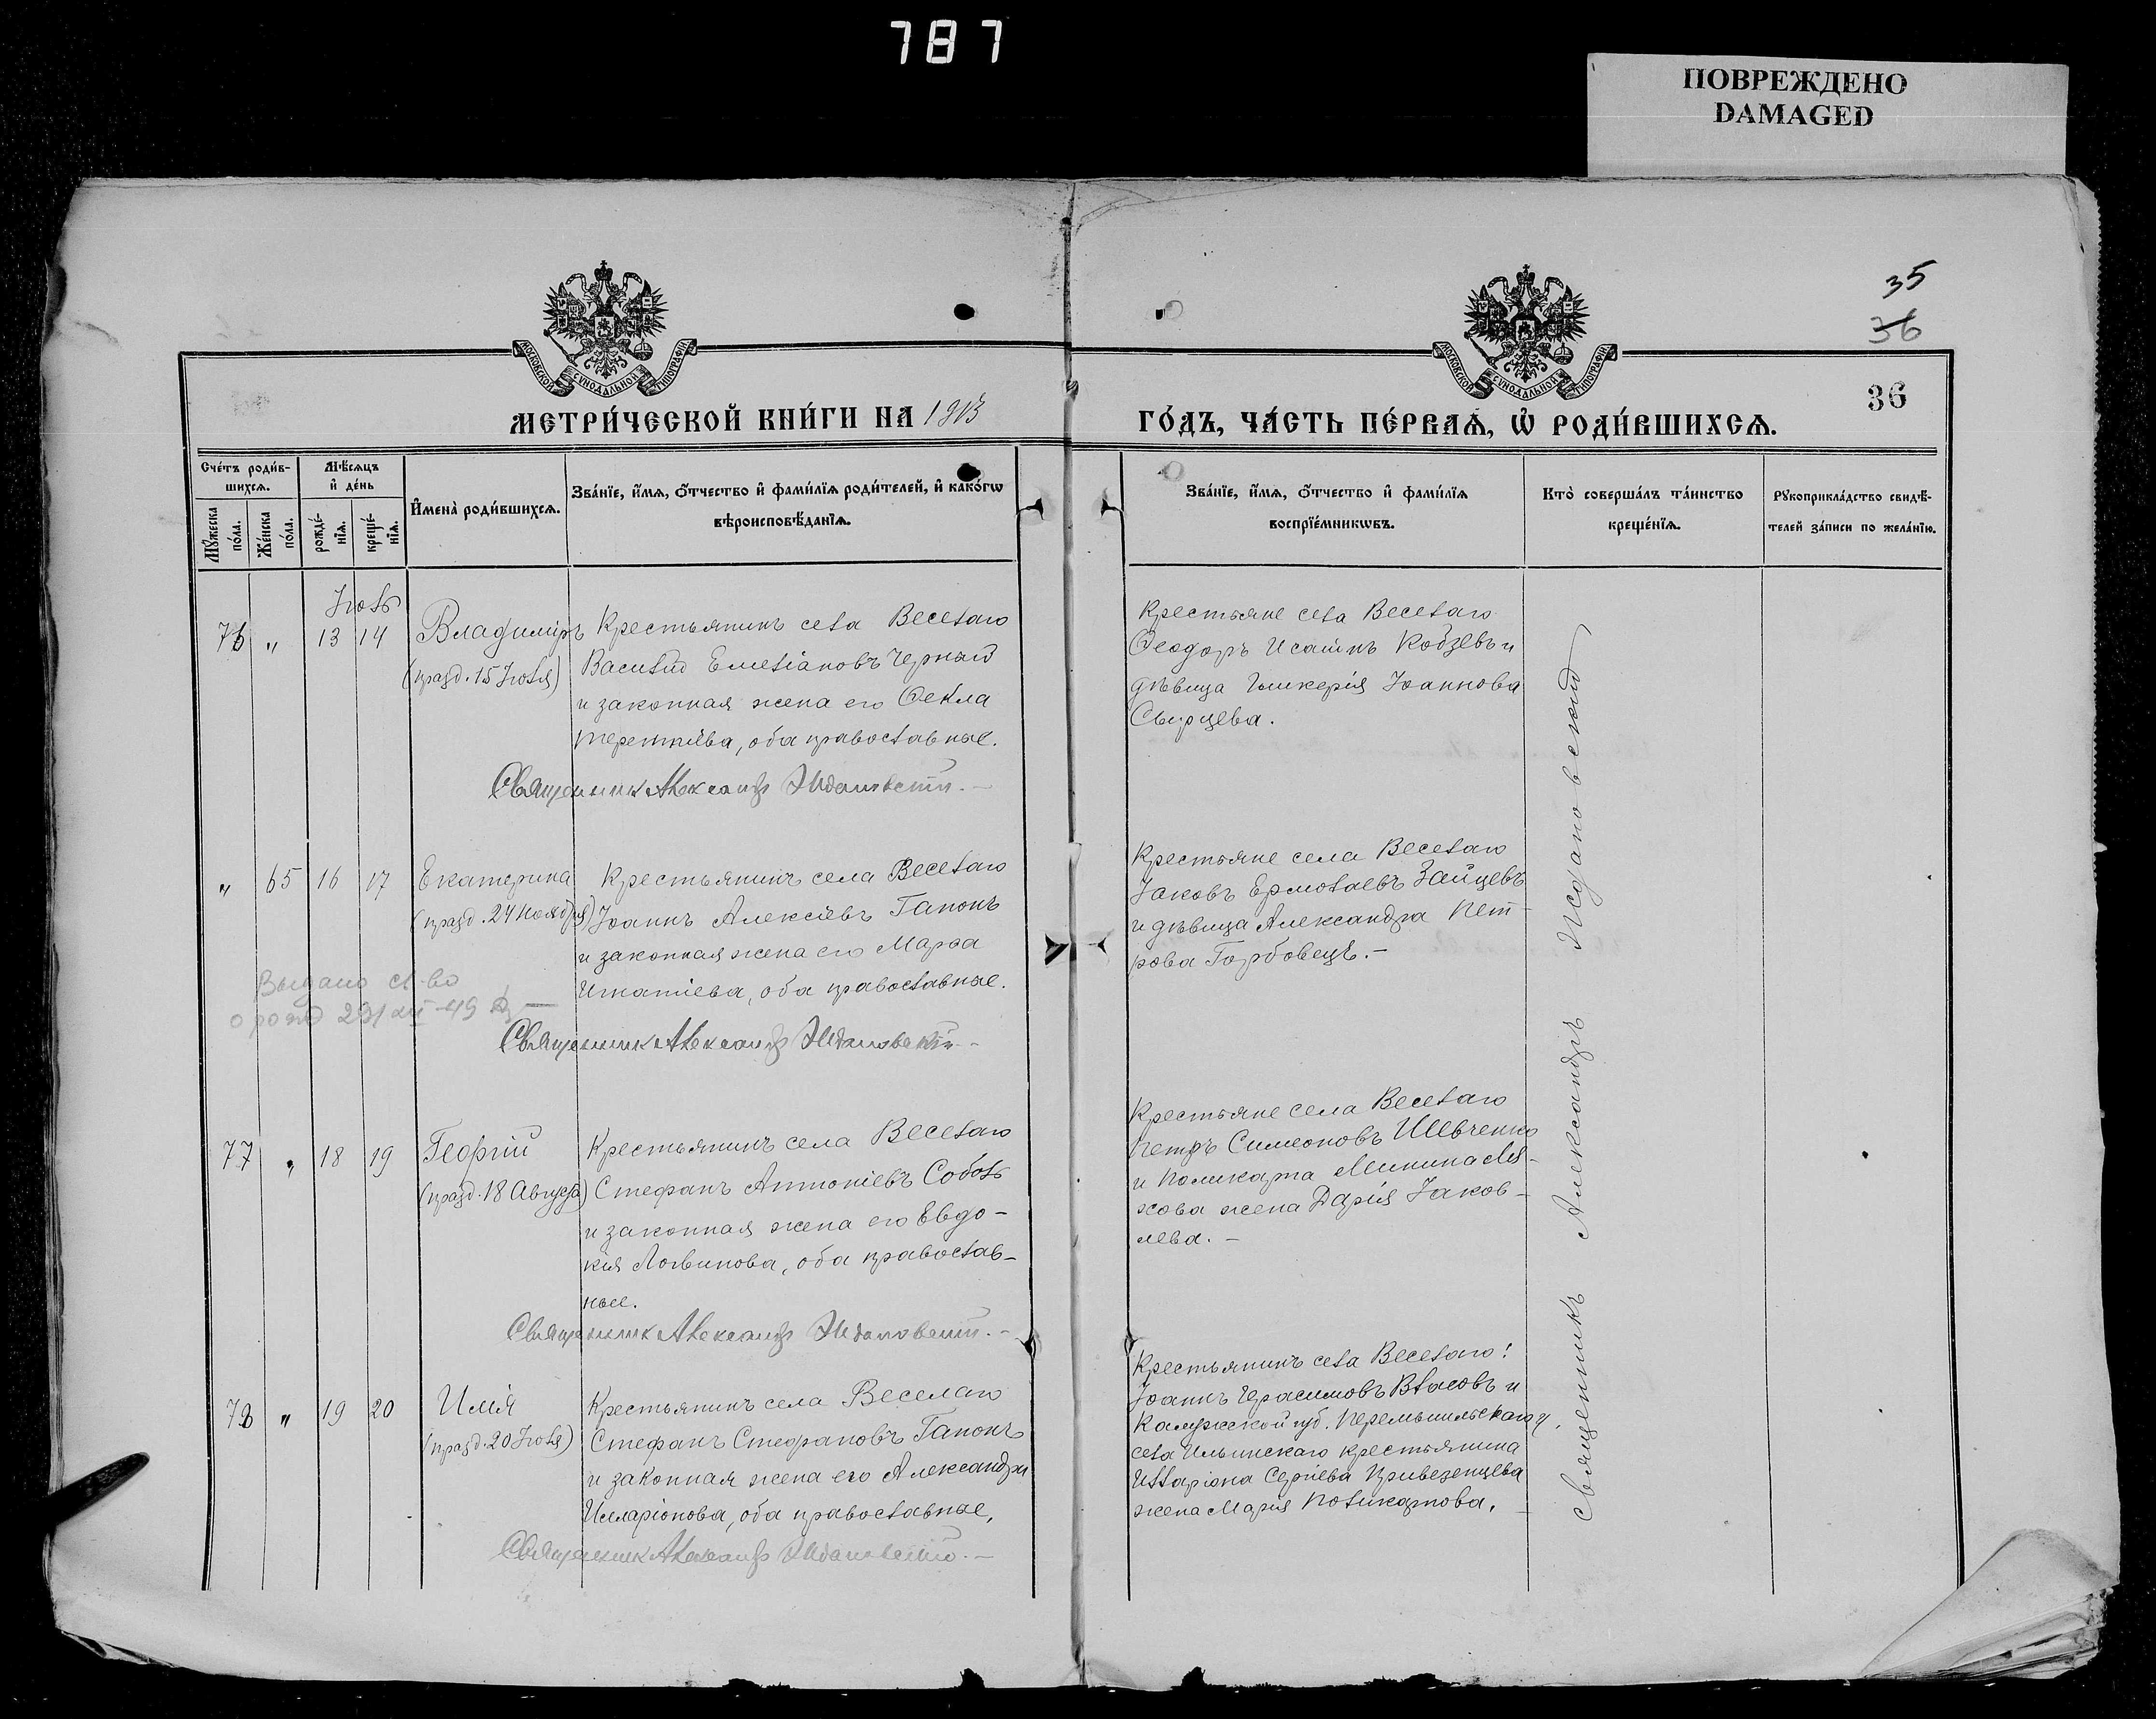 787
ПОВРЕЖДЕНО
DAMAGED
35
36
36
МОСКОВСКОЙ СѴНОДАЛЬНОЙ ТИПОГРАФІИ
МОСКОВСКОЙ СѴНОДАЛЬНОЙ ТИПОГРАФІИ
МЕТРИ́ЧЕСКОЙ КНИ́ГИ НА 1913
ГО́ДЪ, ЧА́СТЬ ПЕ́РВАѦ, Ѡ҆ РОДИ́ВШИХСѦ.
Сче́тъ роди́в-
шихсѧ.
Мꙋ́жеска по́ла.
Же́нска по́ла.
Мѣ́сѧцъ
и҆ де́нь
рожде́-
нїѧ.
креще́-
нїѧ.
И҆мена̀ роди́вшихсѧ.
Зва́нїе, и҆́мѧ, ѻ҆́тчество и҆ фами́лїѧ роди́телей, и҆ како́гѡ
вѣроисповѣ́данїѧ.
Зва́нїе, и҆́мѧ, ѻ҆́тчество и҆ фами́лїѧ
воспрїе́мникѡвъ.
Кто̀ соверша́лъ та́инство
креще́нїѧ.
Рꙋкоприкла́дство свидѣ́-
телей за́писи по жела́нїю.
Іюль
76 " 13 14 Владиміръ
(празд. 15 Іюля)
Крестьянинъ села Веселаго
Василій Емеліановъ Черный
и законная жена его Ѳекла
Терентіева, оба православные.
Священникъ Александръ Ждановскій.—
Крестьяне села Веселаго
Ѳеодоръ Исаинъ Кобзевъ и
дѣвица Гликерія Іоаннова
Свирцева.
" 65 16 17 Екатерина
(празд. 24 Ноября)
Крестьянинъ села Веселаго
Іоаннъ Алексіевъ Гапонъ
и законная жена его Марѳа
Игнатіева, оба православные.
Выдано св-во
о рожд 29/XII-49
Священникъ Александръ Ждановскій.—
Крестьяне села Веселаго
Іаковъ Ермолаевъ Зайцевъ
и дѣвица Александра Пет-
рова Горбовецъ.—
77 " 18 19 Георгій
(празд. 18 Августа)
Крестьянинъ села Веселаго
Стефанъ Антоніевъ Соболь
и законная жена его Евдо-
кія Логвинова, оба православ-
ные.
Священникъ Александръ Ждановскій.—
Крестьяне села Веселаго
Петръ Симеоновъ Шевченко
и Поликарпа Минина Ля-
хова жена Дарія Іаков-
лева.—
78 " 19 20 Илія
(празд. 20 Іюля)
Крестьянинъ села Веселаго
Стефанъ Стефановъ Гапонъ
и законная жена его Александра
Илларіонова, оба православные.
Священникъ Александръ Ждановскій.—
Крестьянинъ села Веселаго:
Іоаннъ Герасимовъ Власовъ и
Калужской губ. Перемышльскаго у.
села Ильинскаго крестьянина
Илларіона Сергіева Привезенцева
жена Марія Поликарпова.—
священникъ Александръ Ждановскій